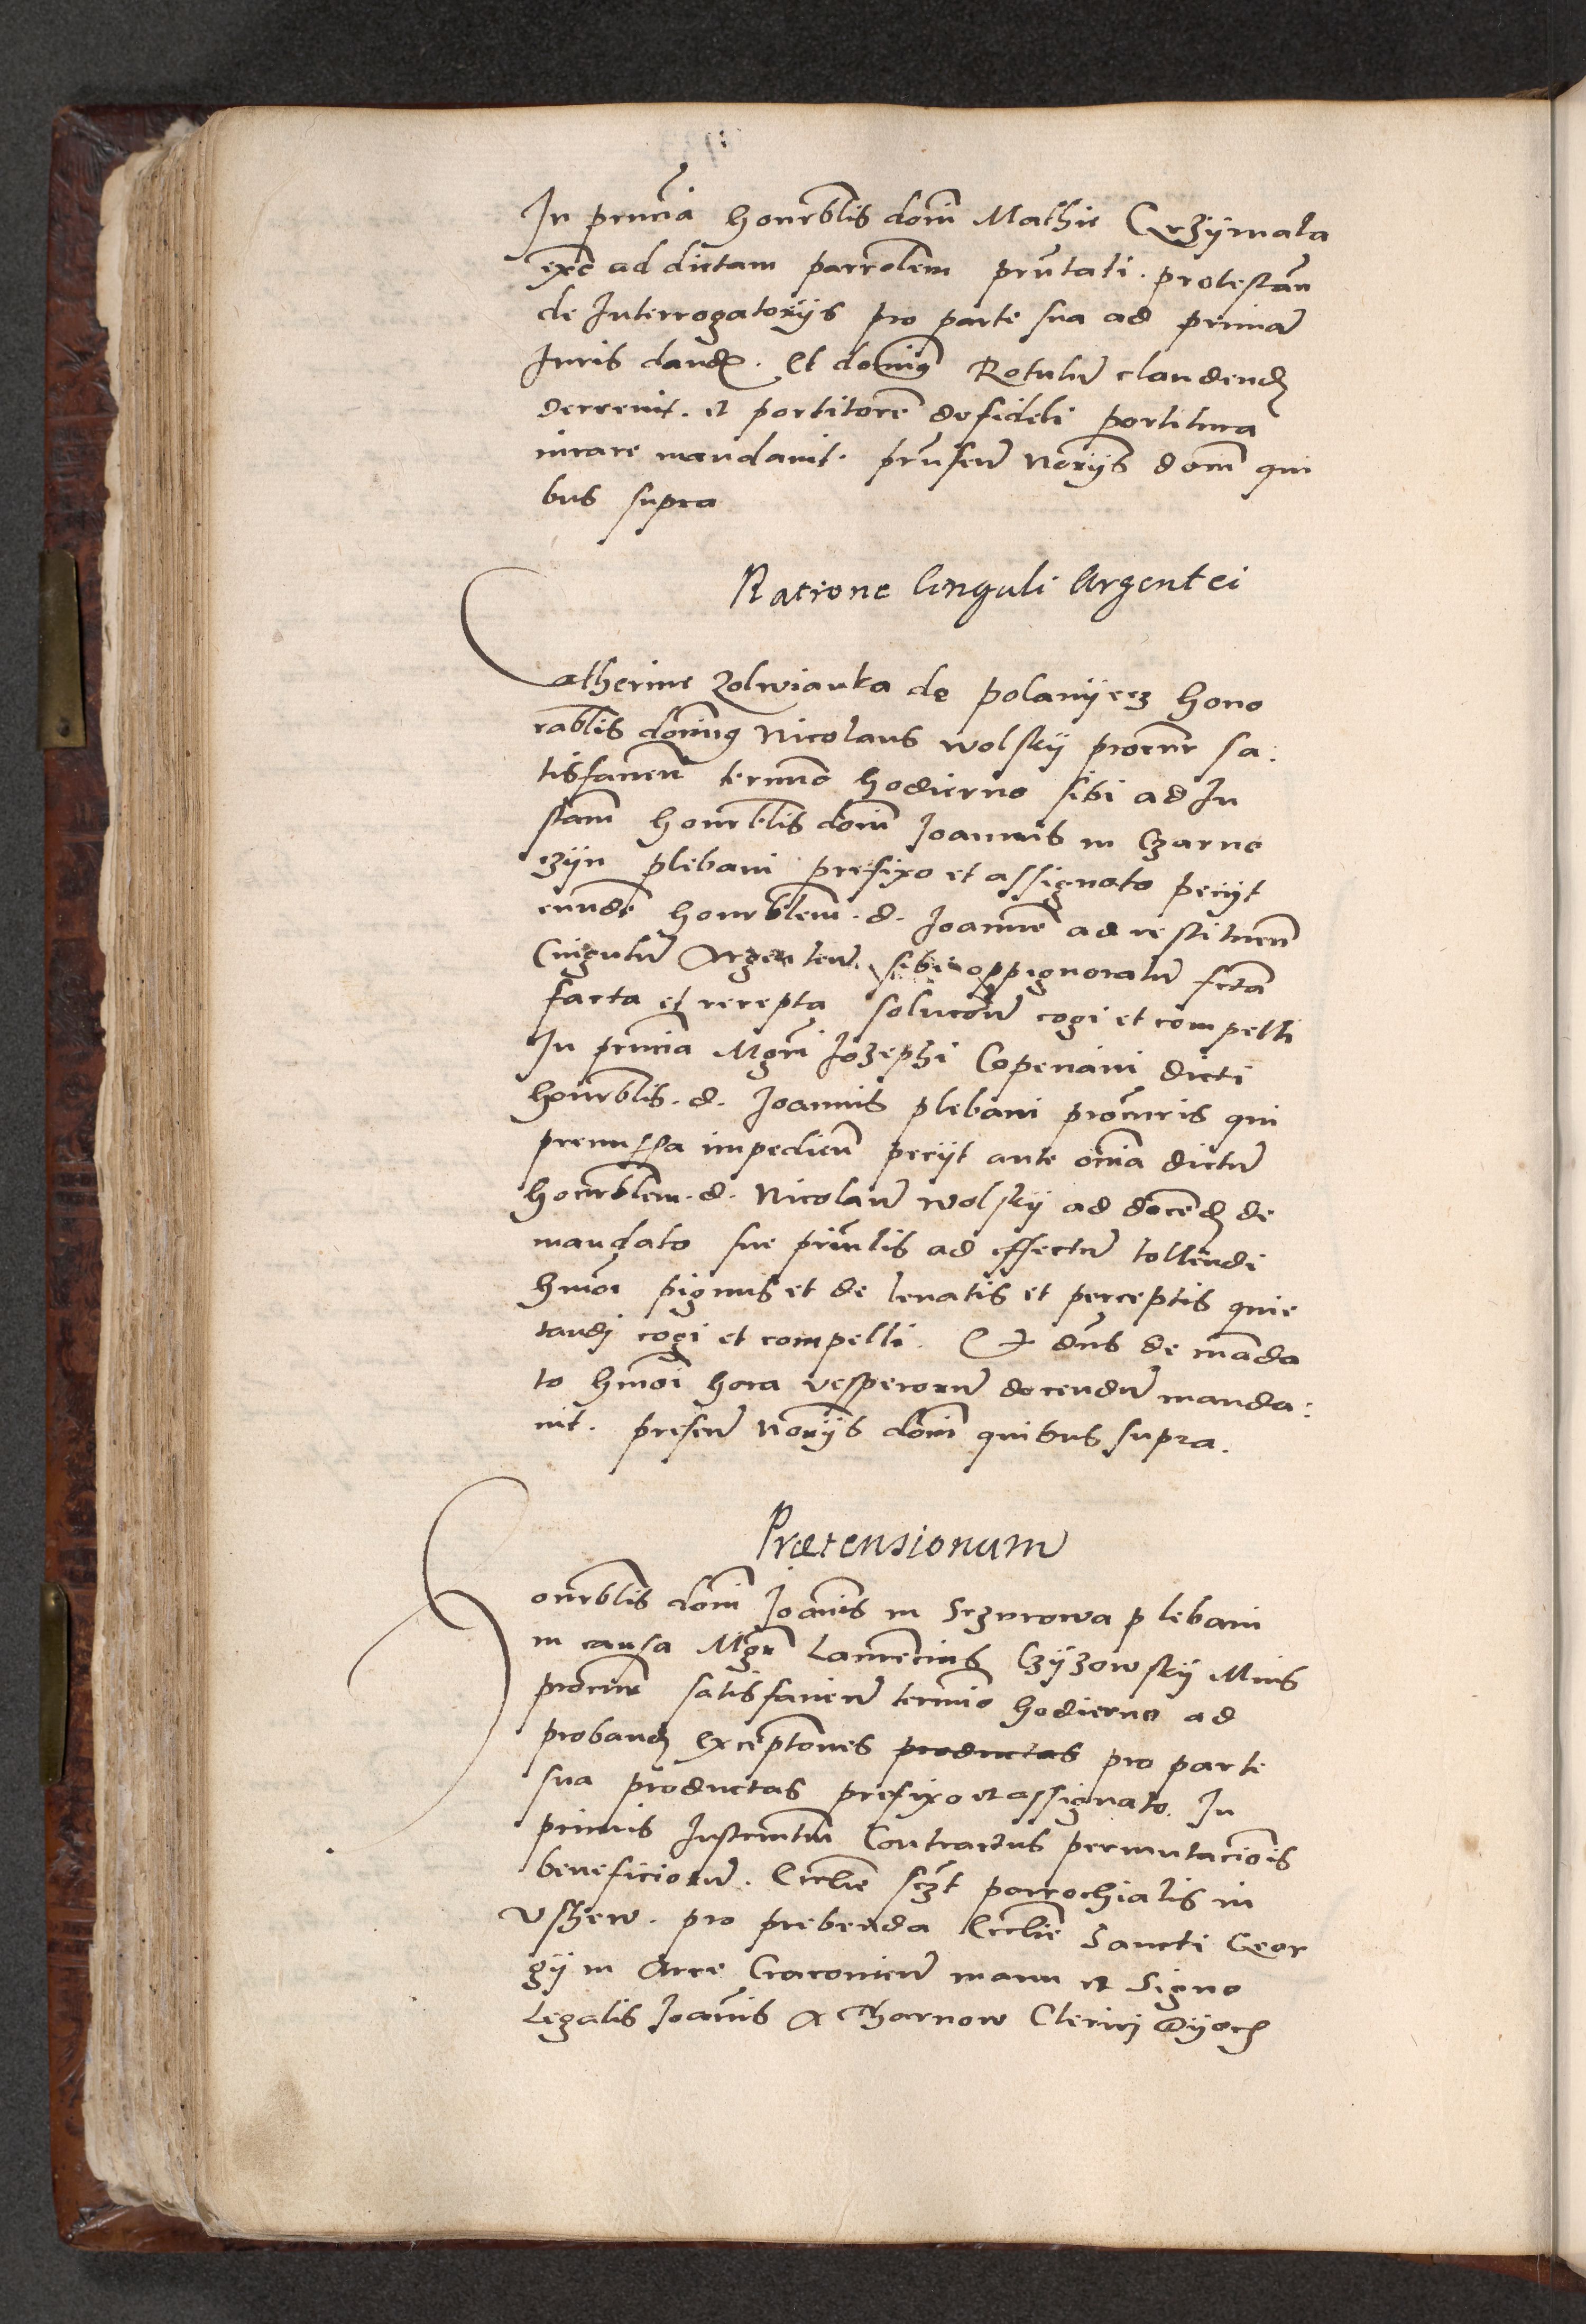 In prncia honrblis domi Mathie Grzÿmala
exñ ad dictam parrolem prñtati. protestan
de Interrogatorÿs pro parte sua ad primã
Iuris dand. Et dominus Rotulũ claudend
decrevit. et portitorẽ de fideli portitura
iurare mandavit. prñsen norÿs dom qui
bus supra
Ratione Cinguli Argentei
Catherine Zolwianka de polanÿecz hono
rablis dominus Nicolaus wolskÿ procur sa:
tisfacien termino hodierno sibi ad In
stam honrblis domi Joannis in Czarno
czÿn plebani prefixo et assignato petÿt
eundẽ honrblem. d. Joannẽ ad restituen
Cingulũ Argenteũ sibi oppignoratũ
facta et recepta solucõe cogi et compelli
In prncia Mgri Jozephi dicti
honrblis. d. Joannis plebani procuris qui
premissa impedien petÿt ante omia dictũ
honrblem. d. Nicolaũ wolskÿ ad docend de
mandato sue prinlis ad effectũ tollendi
hmoi pignus et de levatis et perceptis quie
tandi cogi et compelli. Et dns de manda
to hmoi hora vesperorũ docendũ manda:
vit. presen norÿs domi quibus supra.
Prætensionum
Honrblis domi Joannis in Sczurowa plebani
in causa Mgr Laurencius Czÿzowskÿ
procur satisfacien termino hodierno ad
proband exceptiones productas pro parte
sua productas prefixo et assignato. In
primis Instrumtum Contractus permutacionis
beneficiorũ. Ecclie sczt parrochialis in
Vschew. pro prebenda Ecclie Sancti Geor
gÿ in Arce Cracovien manu et Signo
Legalis Joannis a Tharnow Clerici Dÿoc